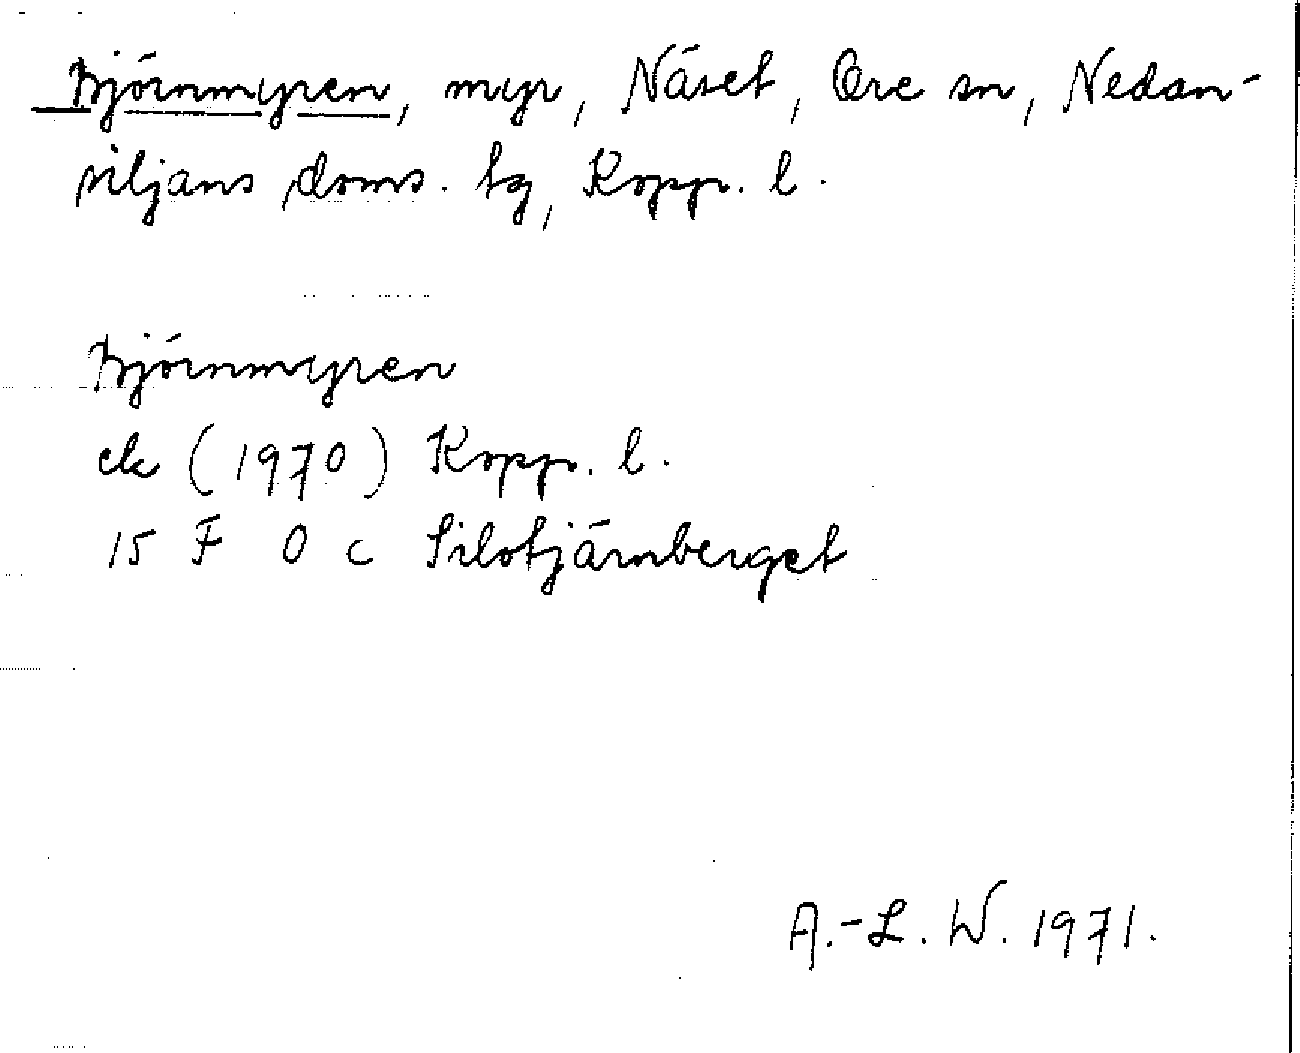 Björnmyren, myr, Näset, Ore sn, Nedan-
siljans doms. tg, Kopp. l.
Björnmyren
ek (1970) Kopp. l.
15 F 0 c Silotjärnberget
A.-L. W. 1971.